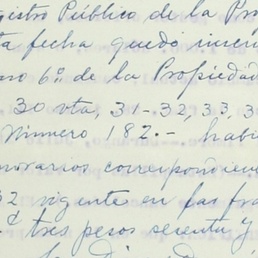 gistro Público de la Pro
ta fecha quedó inscri
mo 6º de la Propiedad
30 vta, 31-32, 33, 3
Número 182.- habi
norarios correspondien
32 vigente en las fra
tres pesos sesenta y